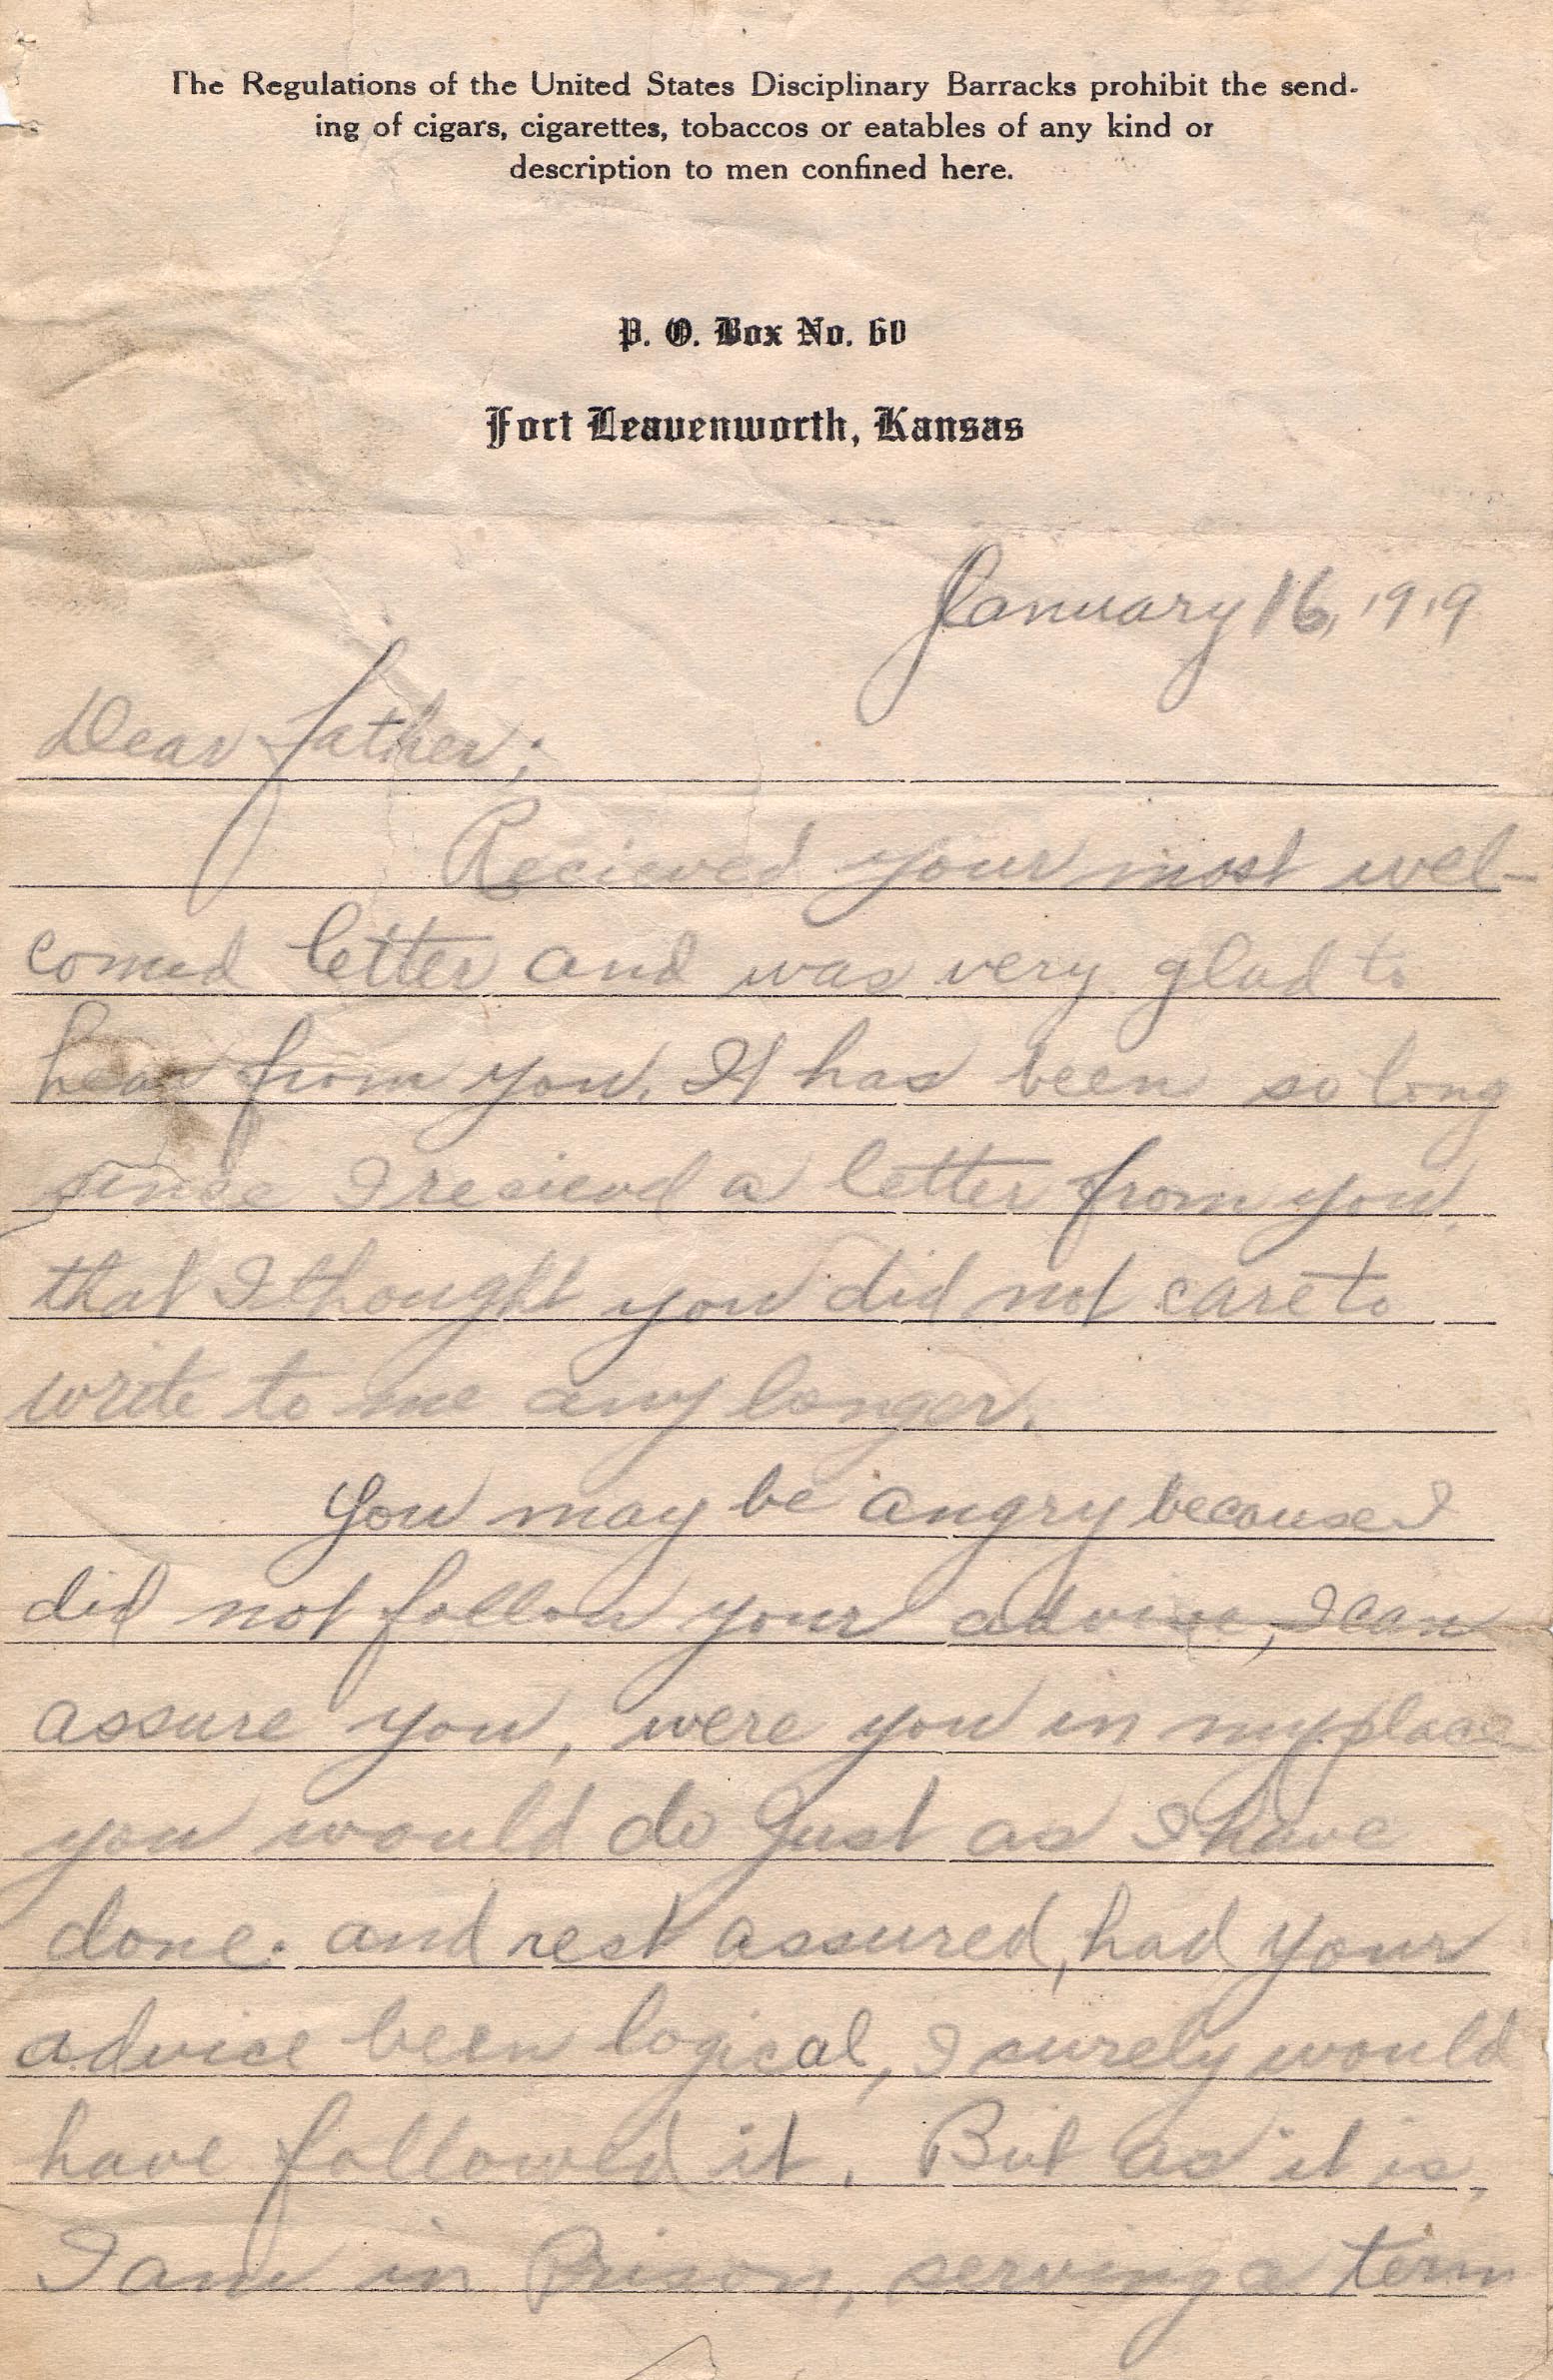 The Regulations of the United States Disciplinary Barracks prohibit the send-
ing of cigars, cigarettes, tobaccos or eatables of any kind or
description to men confined here.
P. O. Box No. 60
Fort Leavenworth, Kansas
January 16, 1919
Dear father;
Recieved your most wel-
comed letter and was very glad to
hear from you. It has been so long
since I recievd a letter from you,
that I thought you did not care to
write to me any longer.
You may be angry because I
did not follow your advise, I can
assure you, were you in my place
you would do Just as I have
done. and rest assured, had your
advice been logical, I surely would
have followed it. But as it is,
I am in Prison, serving a term